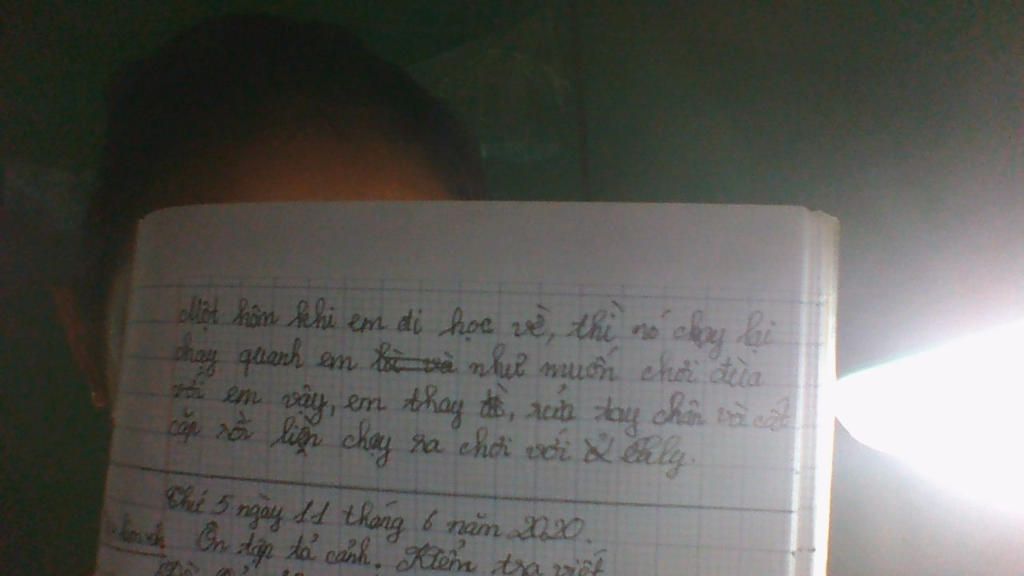 Một hôm khi em đi học về, thì nó chạy lại
chạy quanh em như muốn chơi đùa
với em vậy, em thay đồ, rửa tay chân và cất
cặp rồi liền chạy ra chơi với
Thứ 5 ngày 11 tháng 6 năm 2020.
Ôn tập tả cảnh. Kiểm tra viết